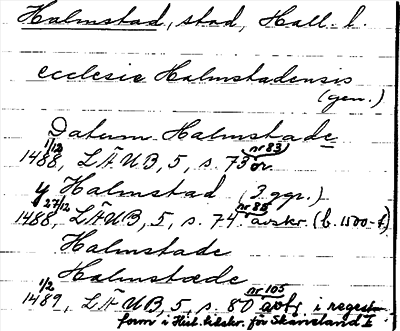 Halmstad, stad, Hall. l.
ecclesie Halmstadensis
(gen.)
Datum Halmstade
1/12 nr 83
1488, LÄUB, 5, s. 73 or.
y Halmstad (3 ggr.)
27/12 nr 86
1488, LÄUB, 5, s. 74 avskr. (b. 1500-t)
Halmstade
Halmstæde
1/2 nr 105
1489, LÄUB, 5, s. 80 avtr. i regest-
form i Hist. tidskr. för Skåneland I